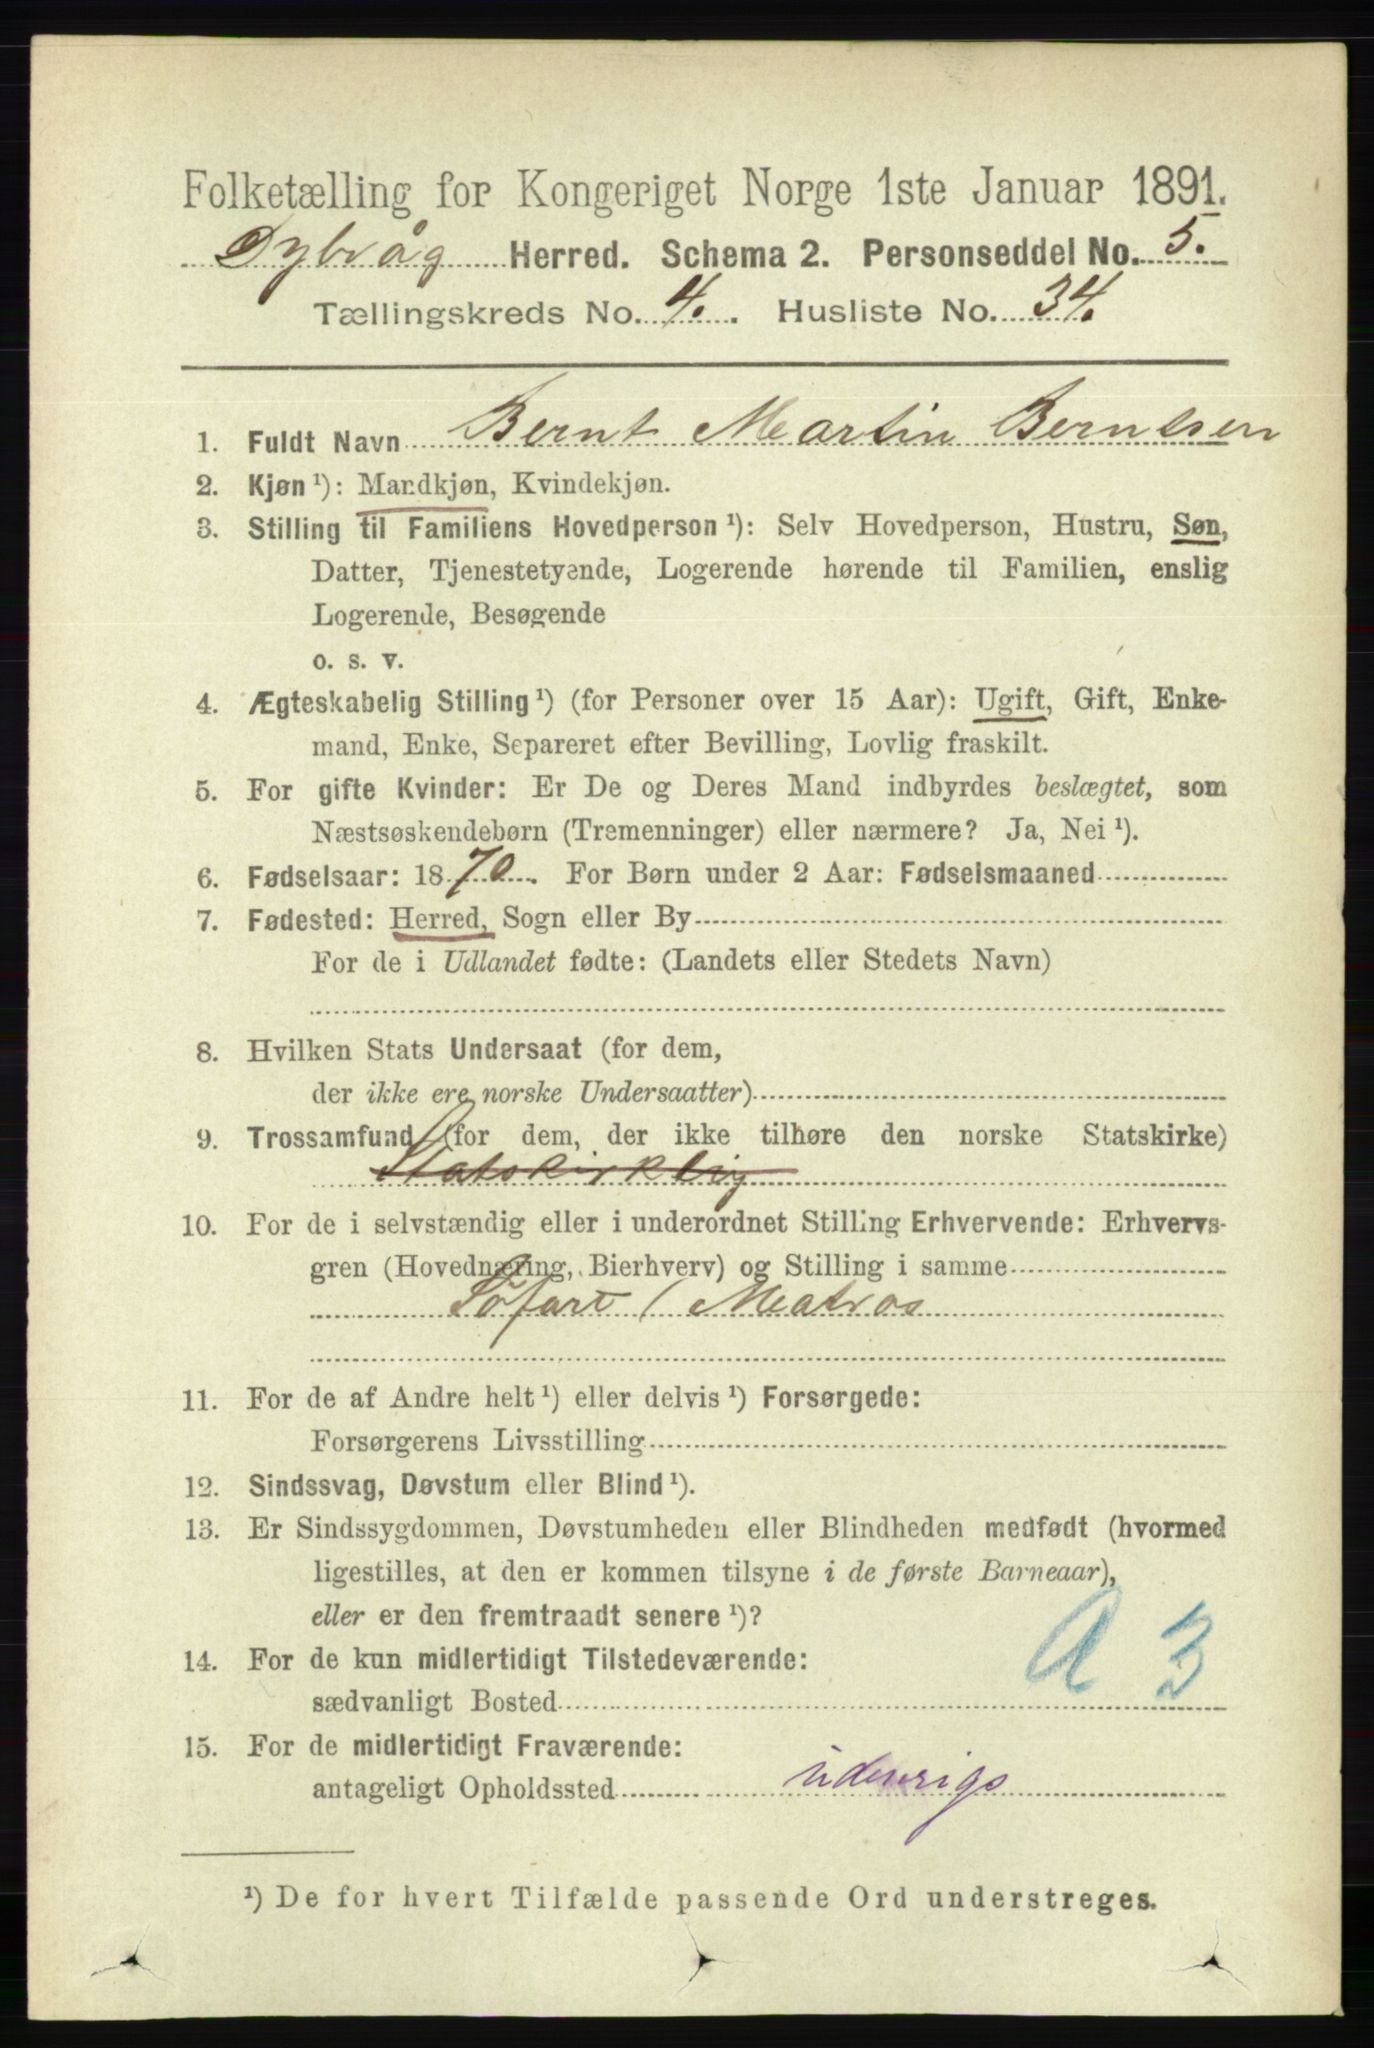 Folketælling for Kongeriget Norge 1ste Januar 1891.
Dybvåg Herred. Schema 2. Personseddel No. 5.
Tællingskreds No. 4. Husliste No. 34.
1. Fuldt Navn Bernt Martin Berntsen
2. Kjøn ¹): Mandkjøn, Kvindekjøn.
3. Stilling til Familiens Hovedperson ¹): Selv Hovedperson, Hustru, Søn,
Datter, Tjenestetyende, Logerende hørende til Familien, enslig
Logerende, Besøgende
o. s. v.
4. Ægteskabelig Stilling ¹) (for Personer over 15 Aar): Ugift, Gift, Enke-
mand, Enke, Separeret efter Bevilling, Lovlig fraskilt.
5. For gifte Kvinder: Er De og Deres Mand indbyrdes beslægtet, som
Næstsøskendebørn (Tremenninger) eller nærmere? Ja, Nei ¹).
6. Fødselsaar: 1870. For Børn under 2 Aar: Fødselsmaaned
7. Fødested: Herred, Sogn eller By
For de i Udlandet fødte: (Landets eller Stedets Navn)
8. Hvilken Stats Undersaat (for dem,
der ikke ere norske Undersaatter)
9. Trossamfund (for dem, der ikke tilhøre den norske Statskirke)
Statskirklig
10. For de i selvstændig eller i underordnet Stilling Erhvervende: Erhvervs-
gren (Hovednæring, Bierhverv) og Stilling i samme
Söfart / Matros
11. For de af Andre helt ¹) eller delvis ¹) Forsørgede:
Forsørgerens Livsstilling
12. Sindssvag, Døvstum eller Blind ¹).
13. Er Sindssygdommen, Døvstumheden eller Blindheden medfødt (hvormed
ligestilles, at den er kommen tilsyne i de første Barneaar),
eller er den fremtraadt senere ¹)?
A 3
14. For de kun midlertidigt Tilstedeværende:
sædvanligt Bosted
15. For de midlertidigt Fraværende:
antageligt Opholdssted udenrigs
¹) De for hvert Tilfælde passende Ord understreges.